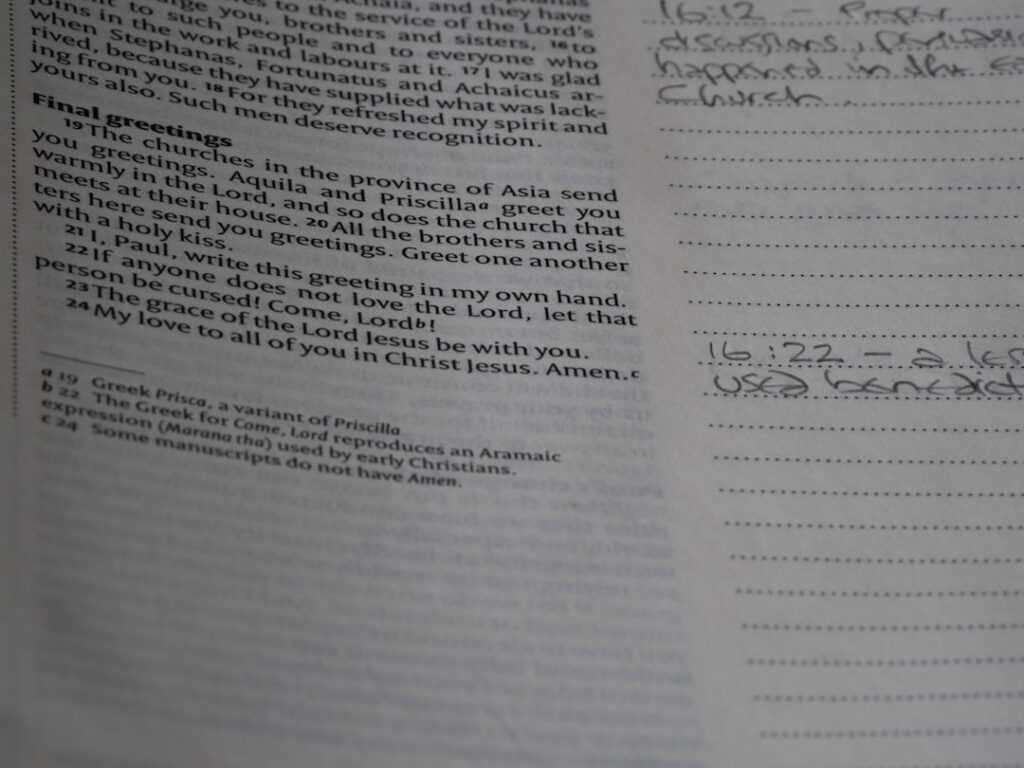 Achaia, and they have
to the service of the Lord's
urge you, brothers and sisters, 16 to
to such people and to everyone who
joins in the work and labours at it. 17 I was glad
when Stephanas, Fortunatus and Achaicus ar-
rived, because they have supplied what was lack-
ing from you. 18 For they refreshed my spirit and
yours also. Such men deserve recognition.
Final greetings
19 The churches in the province of Asia send
you greetings. Aquila and Priscilla a greet you
warmly in the Lord, and so does the church that
meets at their house. 20 All the brothers and sis-
ters here send you greetings. Greet one another
with a holy kiss.
21 I, Paul, write this greeting in my own hand.
22 If anyone does not love the Lord, let that
person be cursed! Come, Lord b!
23 The grace of the Lord Jesus be with you.
24 My love to all of you in Christ Jesus. Amen. c
a 19 Greek Prisca, a variant of Priscilla
b 22 The Greek for Come, Lord reproduces an Aramaic
expression (Marana tha) used by early Christians.
c 24 Some manuscripts do not have Amen.
16:12 - Proper
discussions,
happened in the
Church.
16:22 - a les
used benedict